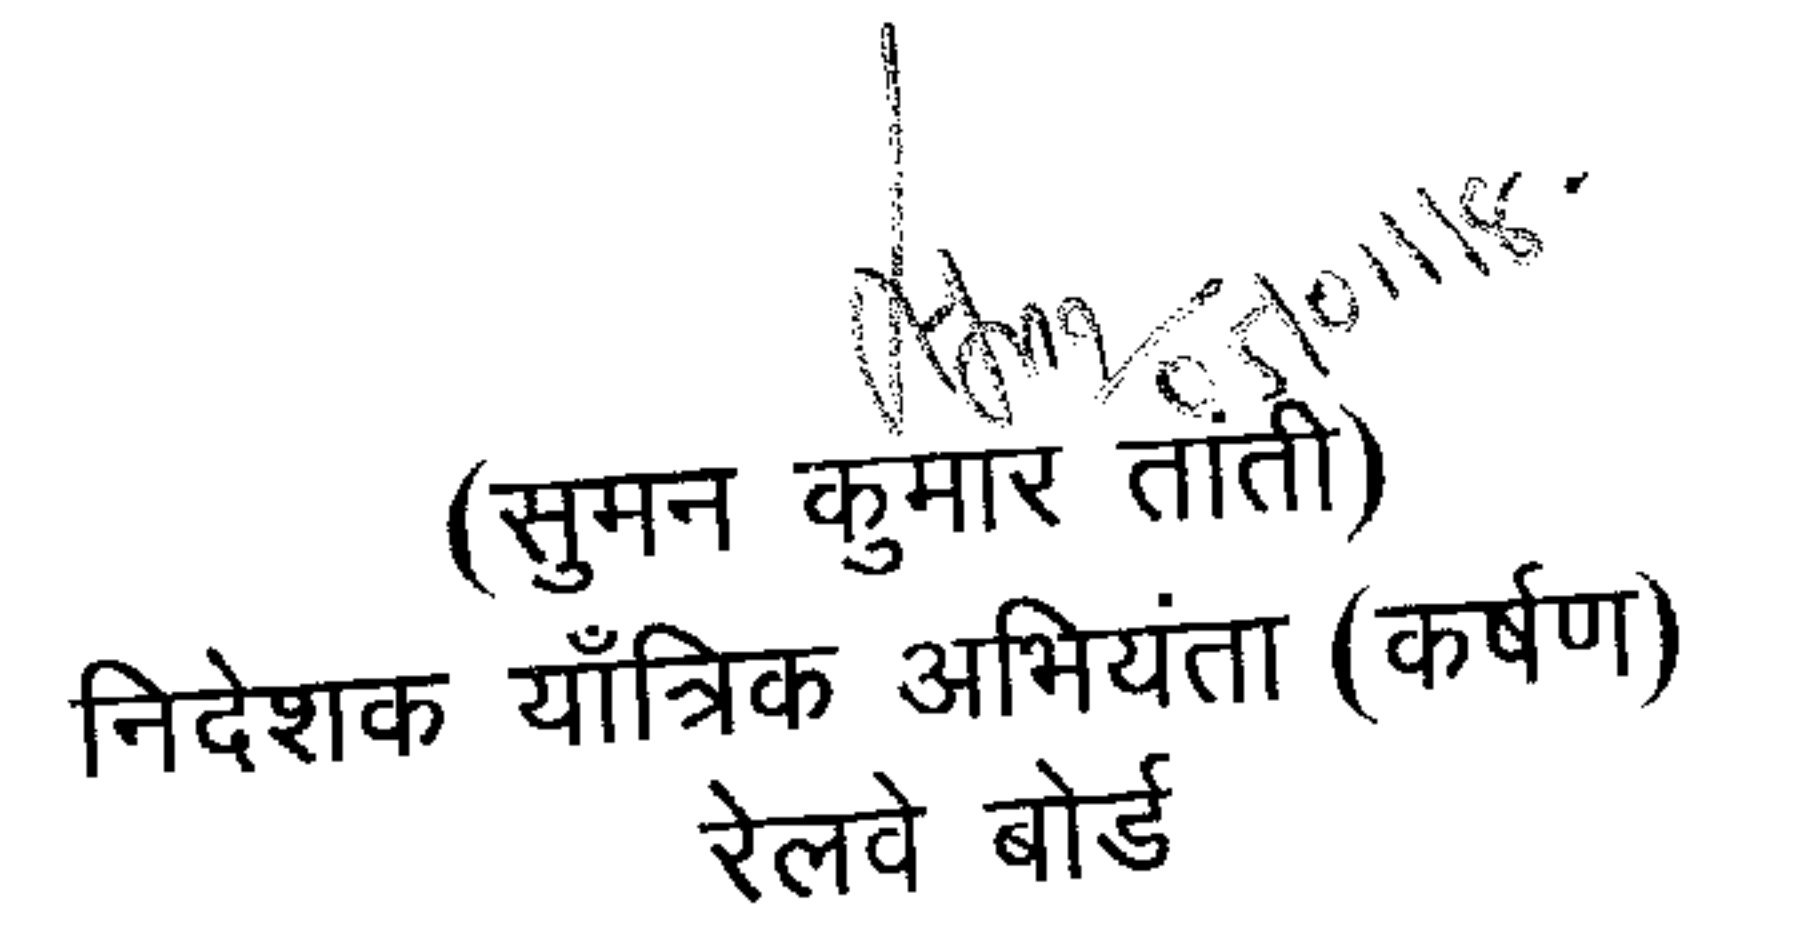 (सुमन कुमार तांती)
निदेशक याँत्रिक अभियंता (कर्षण)
रेलवे बोर्ड